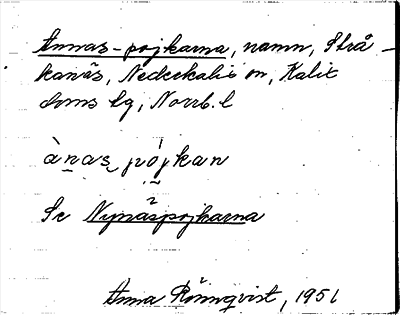 Annas-pojkarna, namn, Strå-
kanäs, Nederkalix sn, Kalix
doms lg, Norrb. l
ànas pójkan
Se Nynäspojkarna
Anna Rönnqvist, 1951